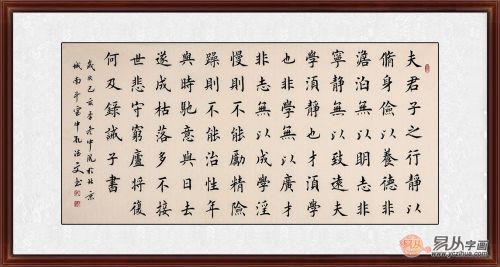 夫君子之行靜以
脩身儉以養德非
澹泊無以明志非
寧靜無以致遠夫
學湏靜也才湏學
也非學無以廣才
非志無以成學淫
慢則不能勵精險
躁則不能治性年
與時馳意與日去
遂成枯落多不接
世悲守窮廬將復
何及錄誡子書
歲次己亥季冬中浣於北京
城南
易从字画
www.yczihua.com